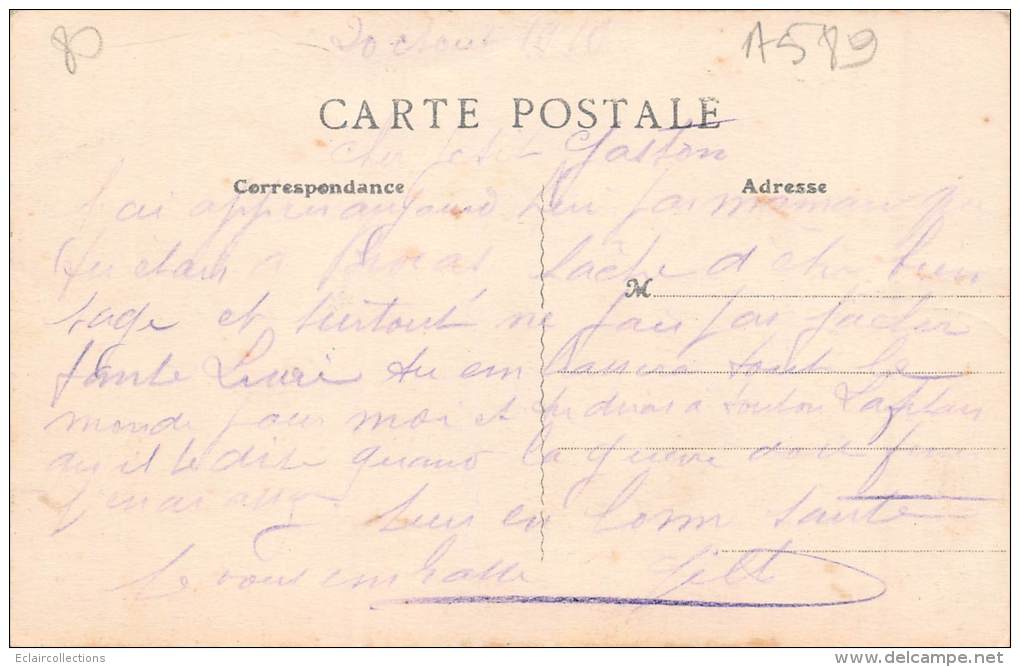 85
20 Aout 1918
A589
CARTE POSTALE
Cher petit Gaston
Correspondance
Adresse
J'ai appris aujourd hui par maman que
tu étais a tâche d'être bien
M
sage et surtout ne fais pas facher
tante tu embrassera tout le
monde pour moi et tu diras a tonton
qu il te dise quand la guerre doit finir
j'en ai assez
suis en bonne santé
Je vous embrasse
Eclaircollections
delcampe.net